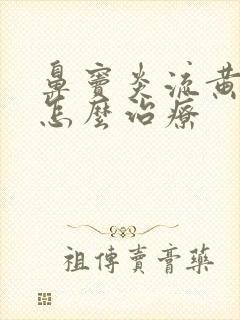 鼻竇炎流黃
怎麼治療
祖傳賣膏藥